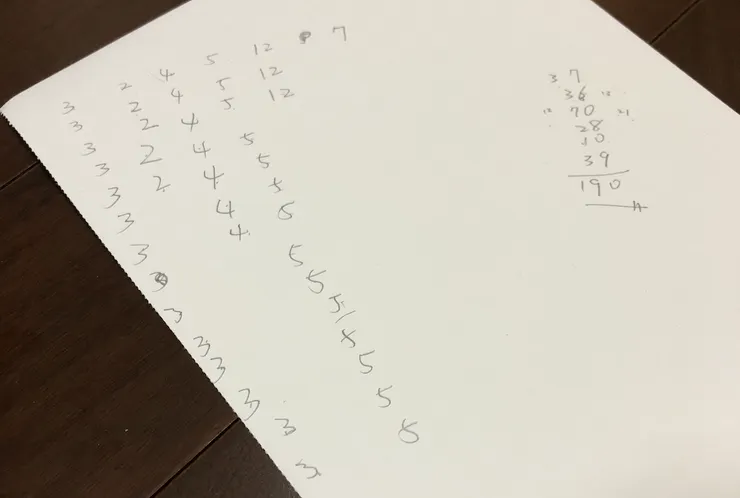 3 2 4 5 12 7
3 2 4 5 12
3 2 4 5 12
3 2 4 5
3 2 4 5
3 4 5
3 4 5
3 5
3 5
3 5
3 5
3 5
3 5
3
37
36
70
28
10
39
190